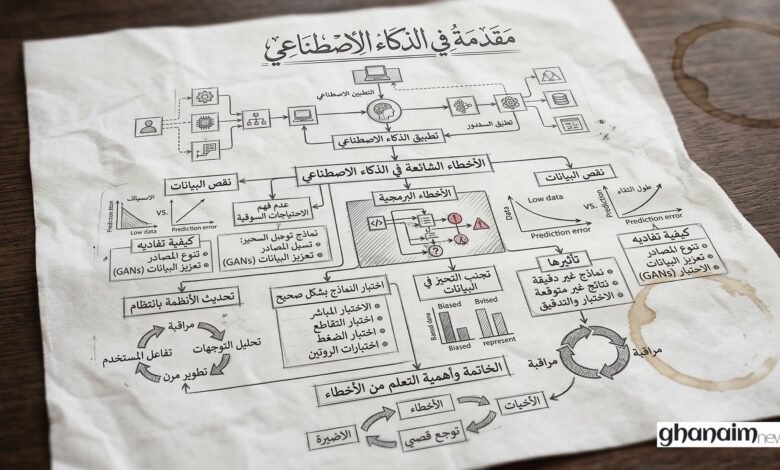 مَقَدَمَةُ في الذكاء الاصطناعي
التطبين الاصطناعي
تطنيق السحدور
تطبيق الذكاء الاصطناعي
الأخطاء الشائعة في الذكاء الاصطناعي
نقص البيانات
عدم فهم
الاحتياجات السوقية
الأخطاء البرمجية
نقص البيانات
Prediction
VS.
Low data
Prediction error
</>
Data
Low data
Prediction error
VS.
Prediction
طول التقاء
Prediction error
كيفية تفاديه
تنوع المصادر
تعزيز البيانات
(GANs)
نماذج توجبل السحير:
تسيل المصادر
تعزيز البيانات (GANs)
تأثيرها
نماذج غير دقيقة
نتائج غير متوقعة
الاختبار والتدقيق
كيفية تفاديه
تنوع المصادر
تعزيز البيانات
الاختبار (GANs)
تحديث الأنظمة بانتظام
مراقبة
تحليل التوجهات
تطوير مرن
تفاعل المستخدم
اختبار النماذج بشكل صحيح
الاختبار المباشر
اختبار التقاطع
اختبار الضغط
اختبارات الروتين
تجنب التحيز في
البيانات
Biased
Bvised
Biased
represent
مراقبة
مراقبة
الخاتمة وأهمية التعلم من الأخطاء
الأخطاء
الأخيات
توجع قصبي
الأضيرة
ghanaim news